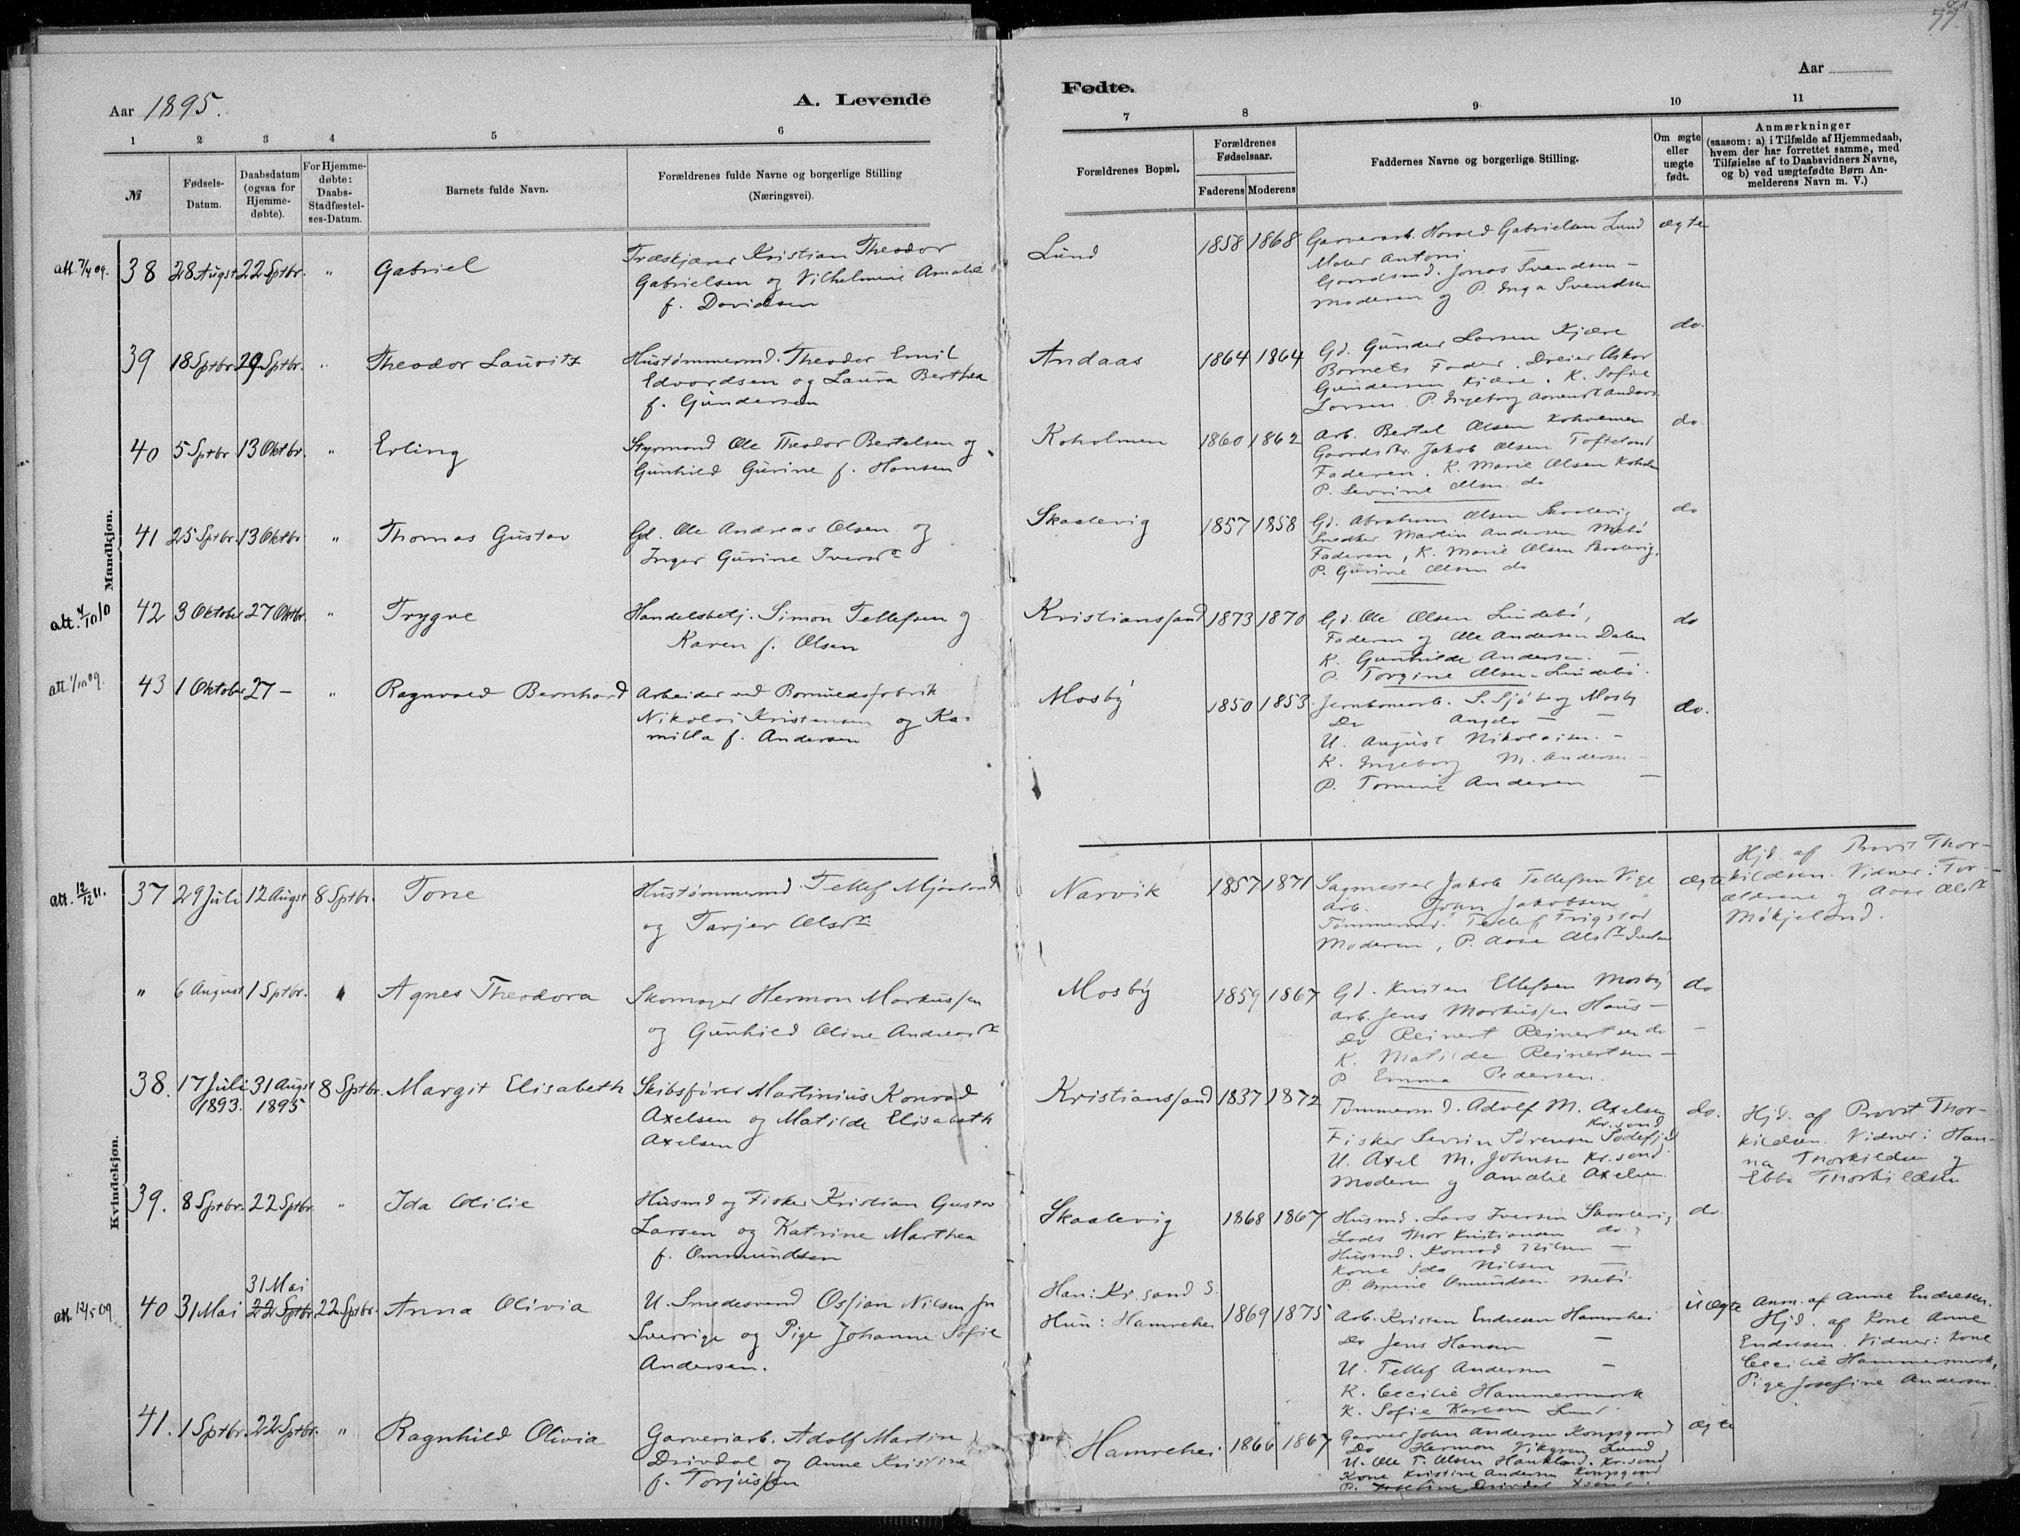 77.
Aar 1895.
A. Levende
Fødte.
Aar
1 2 3 4 5 6
7 8 9 10 11
№
Fødsels-
Datum.
Daabsdatum
(ogsaa for
Hjemme-
døbte).
For Hjemme-
døbte:
Daabs-
Stadfæstel-
ses-Datum.
Barnets fulde Navn.
Forældrenes fulde Navne og borgerlige Stilling
(Næringsvei).
Forældrenes Bopæl.
Forældrenes
Fødselsaar.
Faderens Moderens
Faddernes Navne og borgerlige Stilling.
Om ægte
eller
uægte
født.
Anmærkninger
(saasom: a) i Tilfælde af Hjemmedaab,
hvem der har forrettet samme, med
Tilføielse af to Daabsvidners Navne,
og b) ved uægtefødte Børn An-
melderens Navn m. V.)
Mandkjøn.
att. 7/4 09. 38 28 Augst 22 Sptbr. " Gabriel
Træskjærer Kristian Theodor
Gabrielsen og Vilhelmine Amalie
f. Davidsen
Lund 1858 1868
Garverarb. Harald Gabrielsen Lund
Maler Antoni
Gaardsmd. Jonas Svendsen —
Moderen og P. Inga Svendsen
ægte
39 18 Sptbr. 29 Sptbr. " Theodor Lauritz
Hustømmermd. Theodor Emil
Edvardsen og Laura Berthea
f. Gundersen
Andaas 1864 1864
Gd. Gunder Larsen Kjære
Barnets Fader. Dreier Oskar
Gundersen Kjære. K. Sofie
Larsen. P. Ingeborg
do.
40 5 Sptbr 13 Oktbr. " Erling
Styrmand Ole Theodor Bertelsen og
Gunhild Gurine f. Hansen
Koholmen 1860 1862
Arb. Bertel Olsen Koholmen
Gaardsbr. Jakob Olsen Tofteland
Faderen. K. Marie Olsen Koholm
P. Sevrine Olsen do
do
41 25 Sptbr. 13 Oktbr " Thomas Gustav
Gd. Ole Andreas Olsen og
Inger Gurine Iversdr
Skaalevig 1857 1858
Gd. Abraham Olsen Skaalevig
Snedker Martin Andersen Mebø
Faderen, K. Marie Olsen Skaalevig.
P. Gurine Olsen do
do
att. 4/10 10 42 3 Oktober 27 Oktbr. " Trygve
Handelsbetj. Simon Tellefsen og
Karen f. Olsen
Kristianssand 1873 1870
Gd. Ole Olsen Lindebø,
Faderen og Ole Andersen Dalen
K. Gunhilde Andersen. —
P. Torgine Olsen Lindebø.
do
att. 1/10 09. 43 1 Oktober 27 — " Ragnvald Bernhard
Arbeider ved Bomuldsfabrik
Nikolai Kristensen og Ka-
milla f. Andersen
Mosby 1850 1853
Jernbanearb. S. Sjøberg Mosby
Do — —
U. August Nikolaisen. —
K. Ingeborg M. Andersen —
P. Tomine Andersen —
do.
Kvindekjøn.
att. 12/12 11. 37 29 Juli 12 Augst 8 Sptbr. Tone
Hustømmermd. Tellef Mjøaland
og Tarjer Olsdr
Narvik 1857 1871
Sagmester Jakob Tellefsen Vige
Arb. John Jakobsen
Tømmermd. Tellef Frigstad
Moderen, P. Aase Olsdr
ægte
Hjd. af Provst Thor-
kildsen. Vidner: For-
ældrene og Aase Olsdr
Møkjeland.
" 6 August 1 Sptbr. " Agnes Theodora
Skomager Herman Markussen
og Gunhild Oline Andreasdr
Mosby 1859 1867
Gd. Kristen Ellefsen Mosby
Arb. Jens Markussen Haus —
Do Reinert Reinertsen do
K. Matilde Reinertsen —
P. Emma Pedersen.
do
38. 17 Juli 1893. 31 Augst 1895 8 Sptbr. Margit Elisabeth
Skibsfører Martinius Konrad
Axelsen og Matilde Elisabeth
Axelsen
Kristianssand 1837 1872
Tømmermd. Adolf M. Axelsen
Kr.sand
Fisker Sevrin Sørensen
U. Axel M. Johnsen Kr.sand.
Moderen og Amalie Axelsen
do.
Hjd. af Provst Thor-
kildsen. Vidner: Han-
na Thorkildsen og
Ebba Thorkildsen
39. 8 Sptbr. 22 Sptbr. " Ida Otilie
Husmd og Fisker Kristian Gustav
Larsen og Katrine Marthea
f. Ommundsen
Skaalevig 1868 1867
Husmd. Lars Iversen Skaalevig
Lods Thor Kristiansen do.
Husmd. Konrad Nilsen —
Kone Ida Nilsen —
P. Omundsen Mebø
do.
att. 12/5 09. 40 31 Mai 31 Mai 22 Sptbr. 22 Sptbr. Anna Olivia
U. Smedesvend Ossian Nilsen fra
Sverrige og Pige Johanne Sofie
Andersen.
Han: Kr.sand S.
Hun: Hamrehei 1869 1875
Arb. Kristen Endresen Hamrehei
Do Jens Hansen —
U. Tellef Andersen —
K. Cecilie Hammermark
K. Sofie Karlsen Lund.
uægte
Anm. af Anne Endresen.
Hjd. af Kone Anne
Endresen. Vidner: Kone
Cecilie Hammermark,
Pige Josefine Andersen.
41. 1 Sptbr. 22 Sptbr. " Ragnhild Olivia
Garveriarb. Adolf Martin
Drivdal og Anne Kristine
f. Torjussen
Hamrehei 1866 1867
Garver John Andersen Kongsgaard
Do Herman Vikøren Lund
U. Ole T. Olsen Haukland. Kr.sand
Kone Kristine Andersen Kongsgaard
P. Josefine Drivdal
ægte